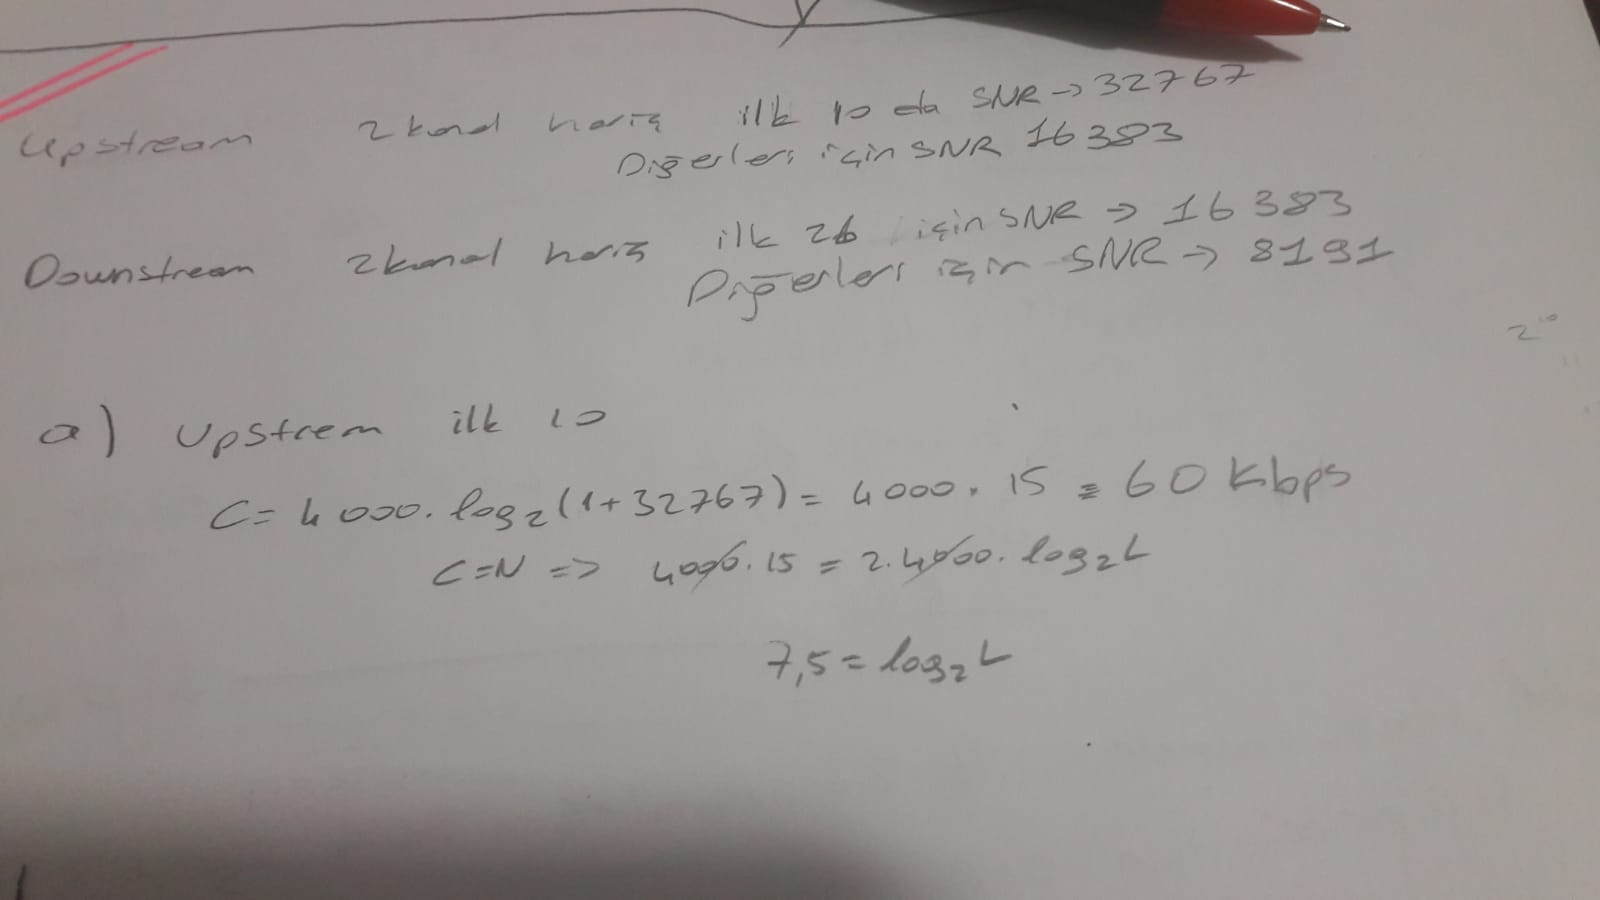 Upstream 2 kanal hariç ilk 10 da SNR → 32767
Diğerleri için SNR 16383
Downstream 2 kanal hariç ilk 26 için SNR → 16383
Diğerleri için SNR → 8191
2¹⁰
a) Upstrem ilk 10
C = 4000. log₂(1+32767) = 4000. 15 = 60 Kbps
C=N => 4000.15 = 2.4000. log₂L
7,5 = log₂L